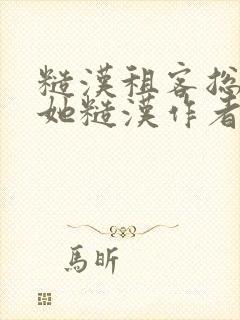 糙漢租客総
她糙漢作者
馬昕